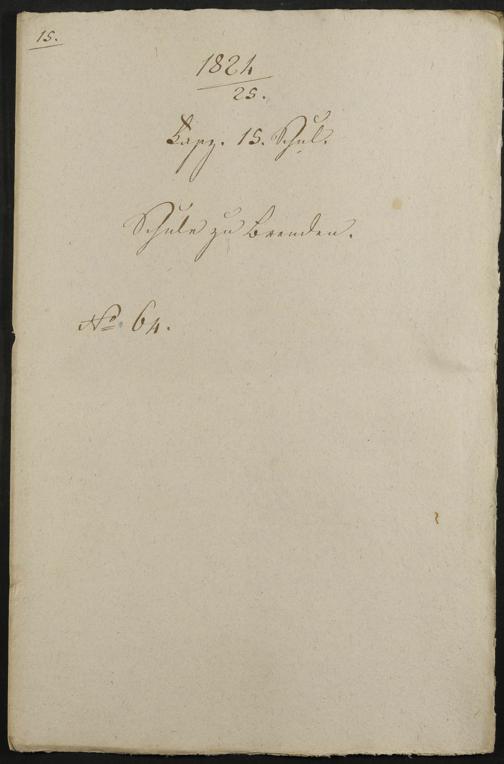 15.
1824
25.
15. Schul.
Schule zu Brenden.
No 64.